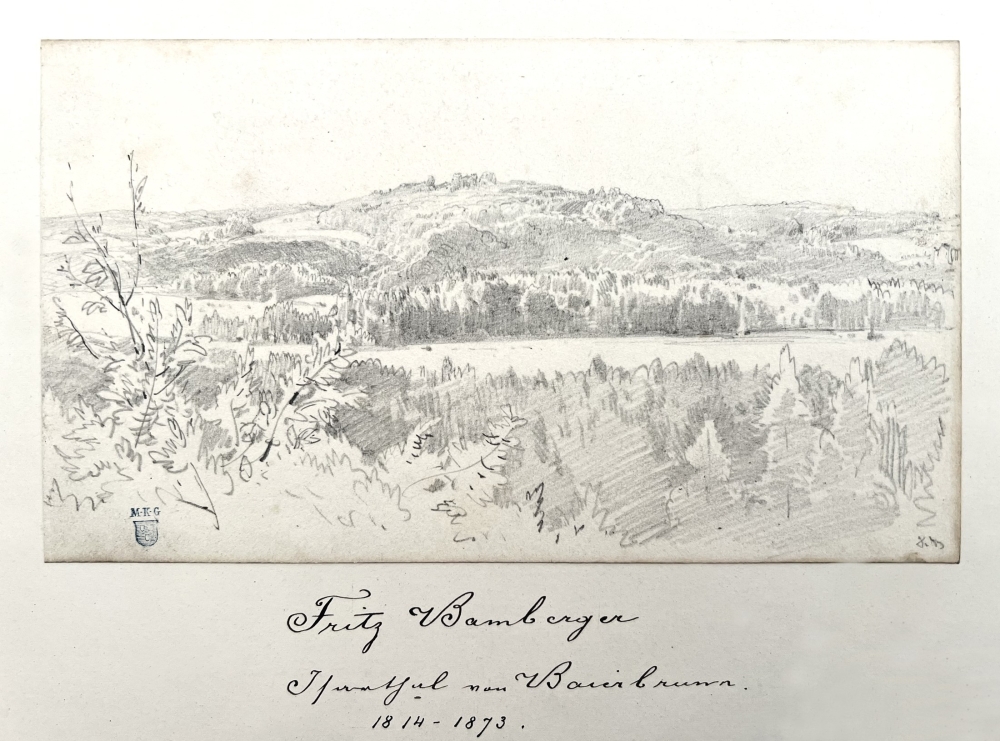 M·K·G
F. B
Fritz Bamberger
Isarthal von Baierbrunn.
1814 - 1873.